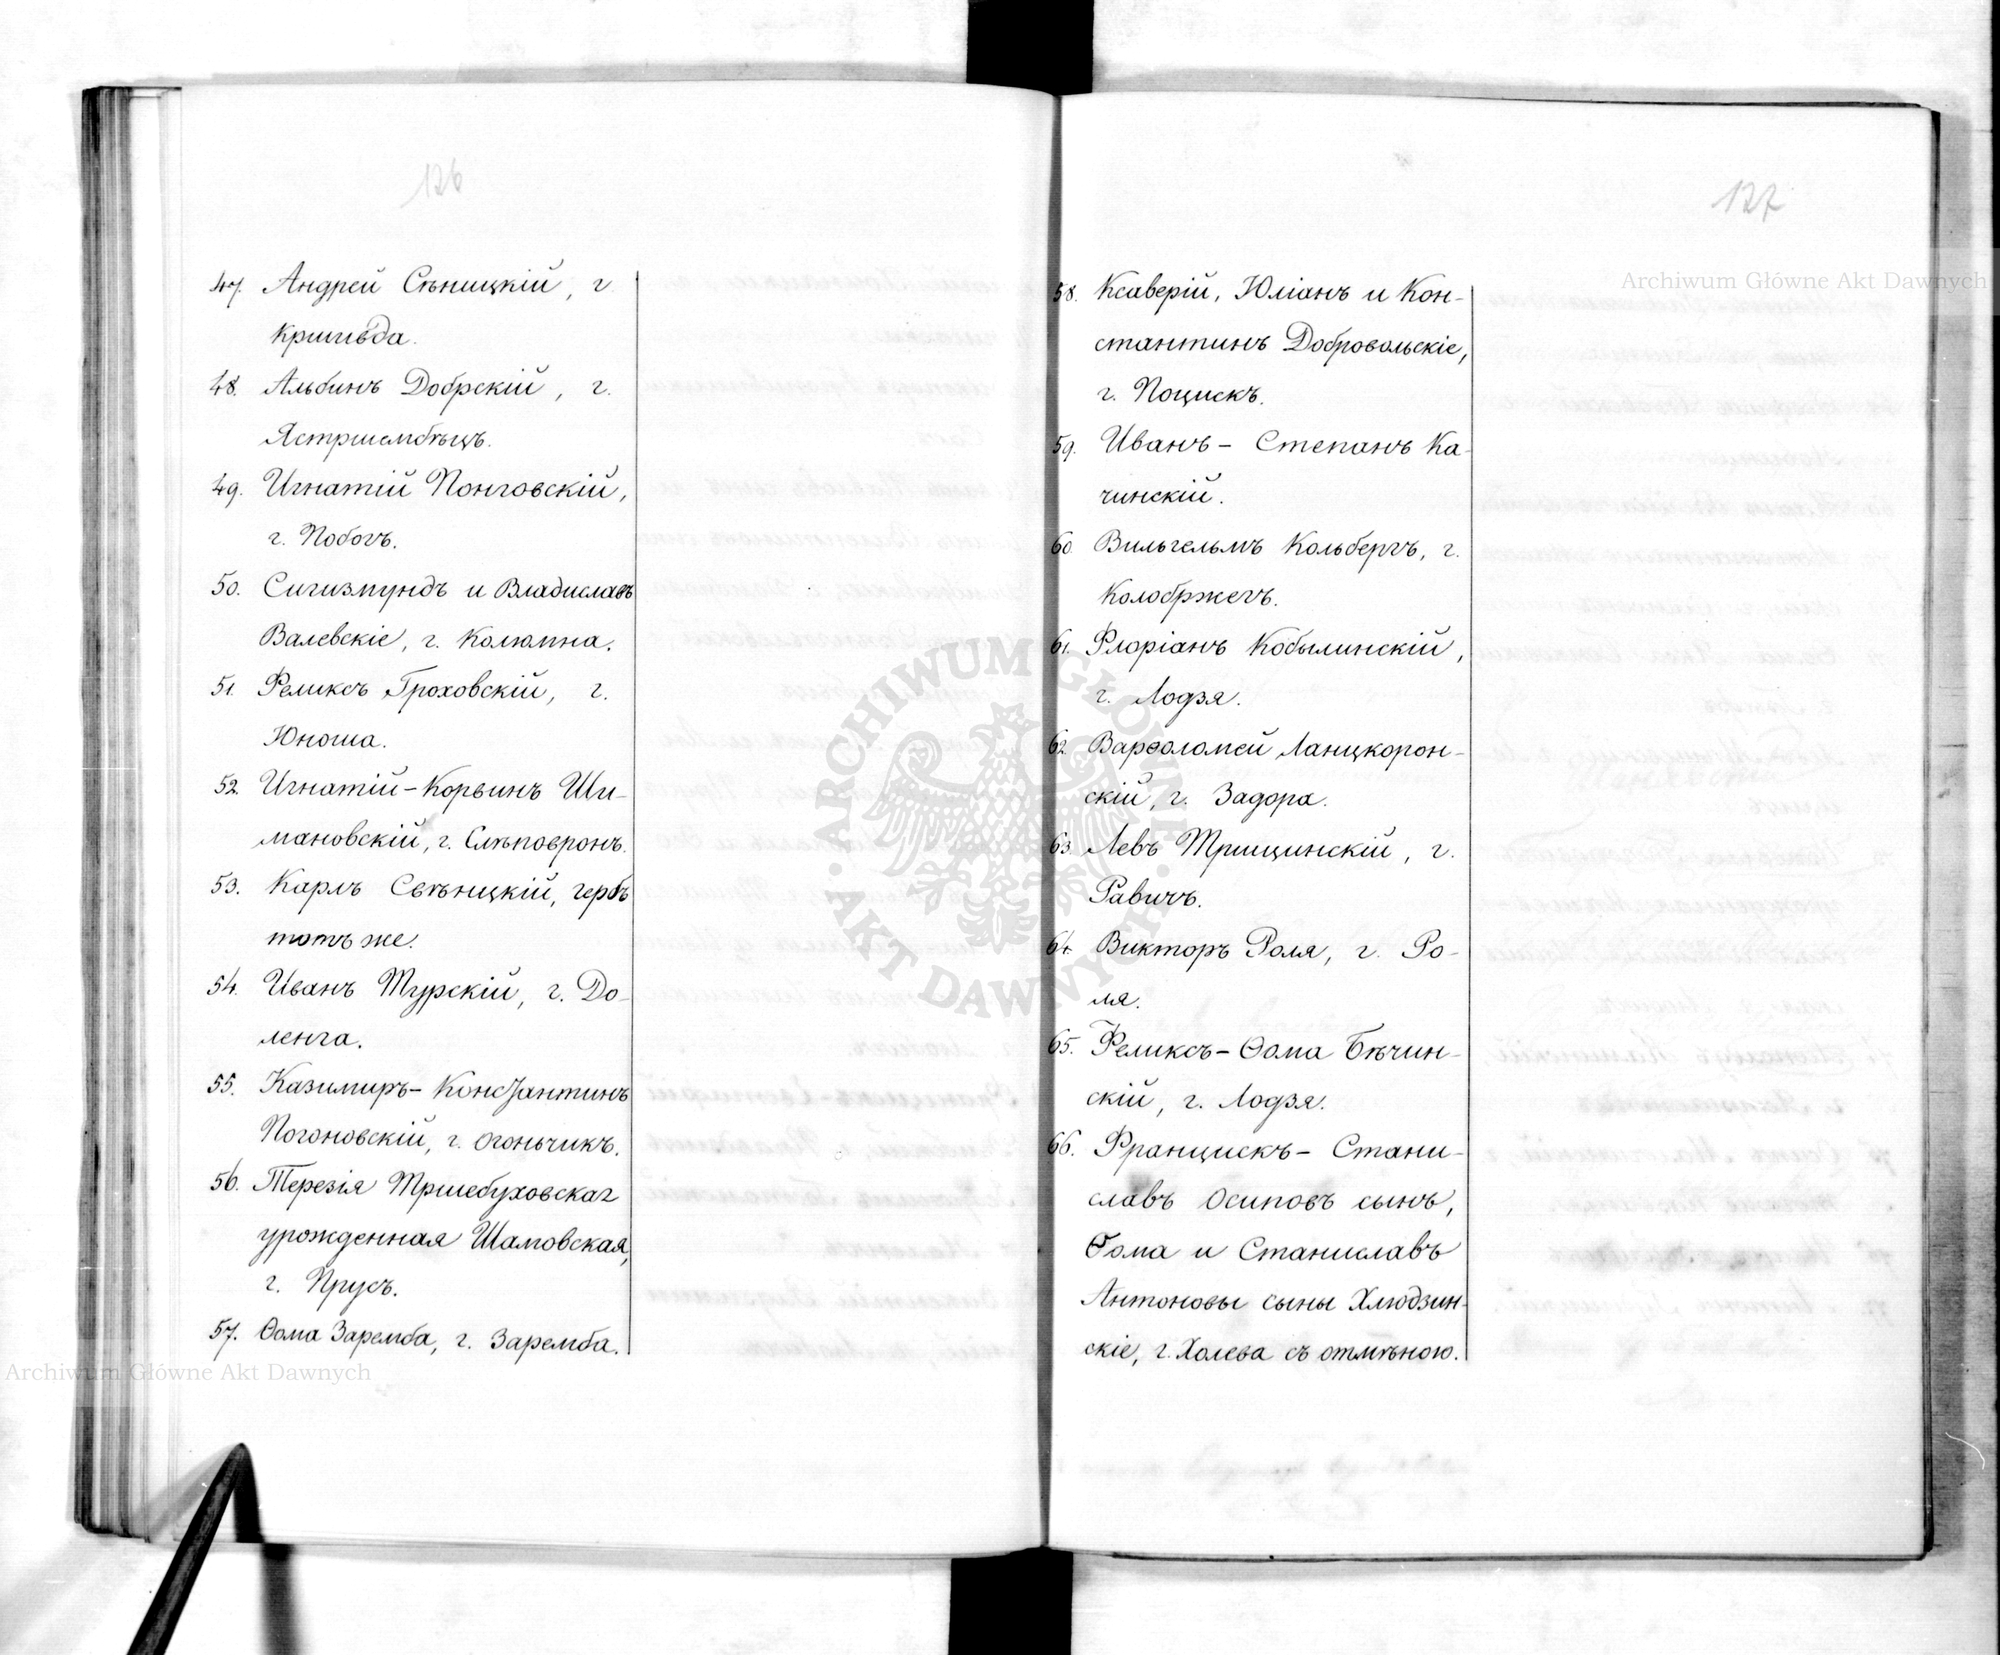 126
47. Андрей Сѣницкій, г.
Кршивда.
48. Альбинъ Добрскій, г.
Ястршембѣцъ.
49. Игнатій Понговскій,
г. Побогъ.
50. Сигизмундъ и Владиславъ
Валевскіе, г. Колюмна.
51. Феликсъ Гроховскій, г.
Юноша.
52. Игнатій-Корвинъ Ши-
мановскій, г. Слѣповронъ.
53. Карлъ Свѣнцкій, гербъ
тотъ же.
54. Иванъ Турскій, г. До-
ленга.
55. Казимиръ-Константинъ
Погоновскій, г. Огоньчикъ.
56. Терезія Тршебуховская
урожденная Шамовская,
г. Прусъ.
57. Ѳома Заремба, г. Заремба.
Archiwum Główne Akt Dawnych
127
Archiwum Główne Akt Dawnych
58. Ксаверій, Юліанъ и Кон-
стантинъ Добровольскіе,
г. Поцискъ.
59. Иванъ-Степанъ Ка-
чинскій.
60. Вильгельмъ Кольбергъ, г.
Колобржегъ.
61. Флоріанъ Кобылинскій,
г. Лодзя.
62. Варѳоломей Ланцкорон-
скій, г. Задора.
63. Левъ Трщинскій, г.
Равичъ.
64. Викторъ Роля, г. Ро-
ля.
65. Феликсъ-Ѳома Бѣчин-
скій, г. Лодзя.
66. Францискъ-Стани-
славъ Осиповъ сынъ,
Ѳома и Станиславъ
Антоновы сыны Хлюдзин-
скіе, г. Холева съ отмѣною.
ARCHIWUM GŁÓWNE AKT DAWNYCH